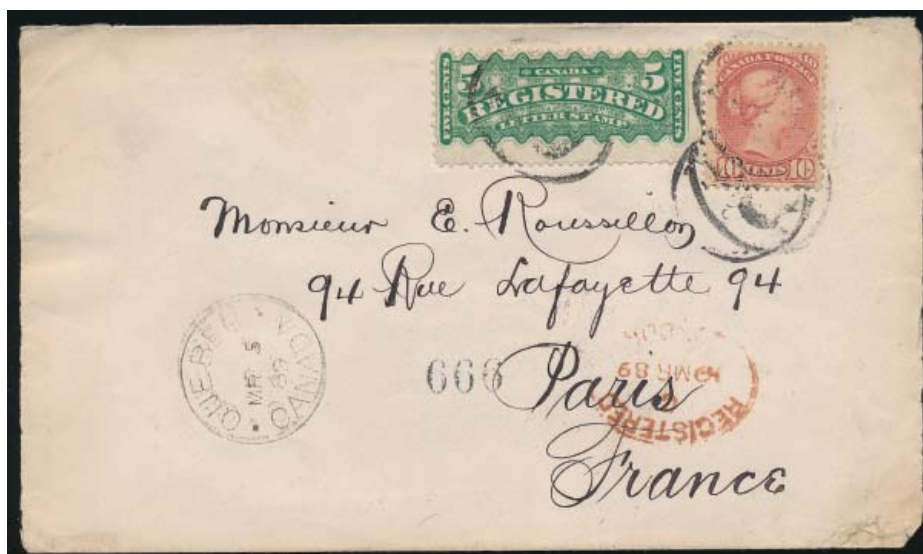 CANADA
5 REGISTERED 5
LETTER STAMP
FIVE CENTS
FIVE CENTS
CANADA POSTAGE
10 CENTS 10
Monsieur E. Roussillon
94 Rue Lafayette 94
Paris
France
QUEBEC CANADA
MR 5
89
666
REGISTERED
MR 89